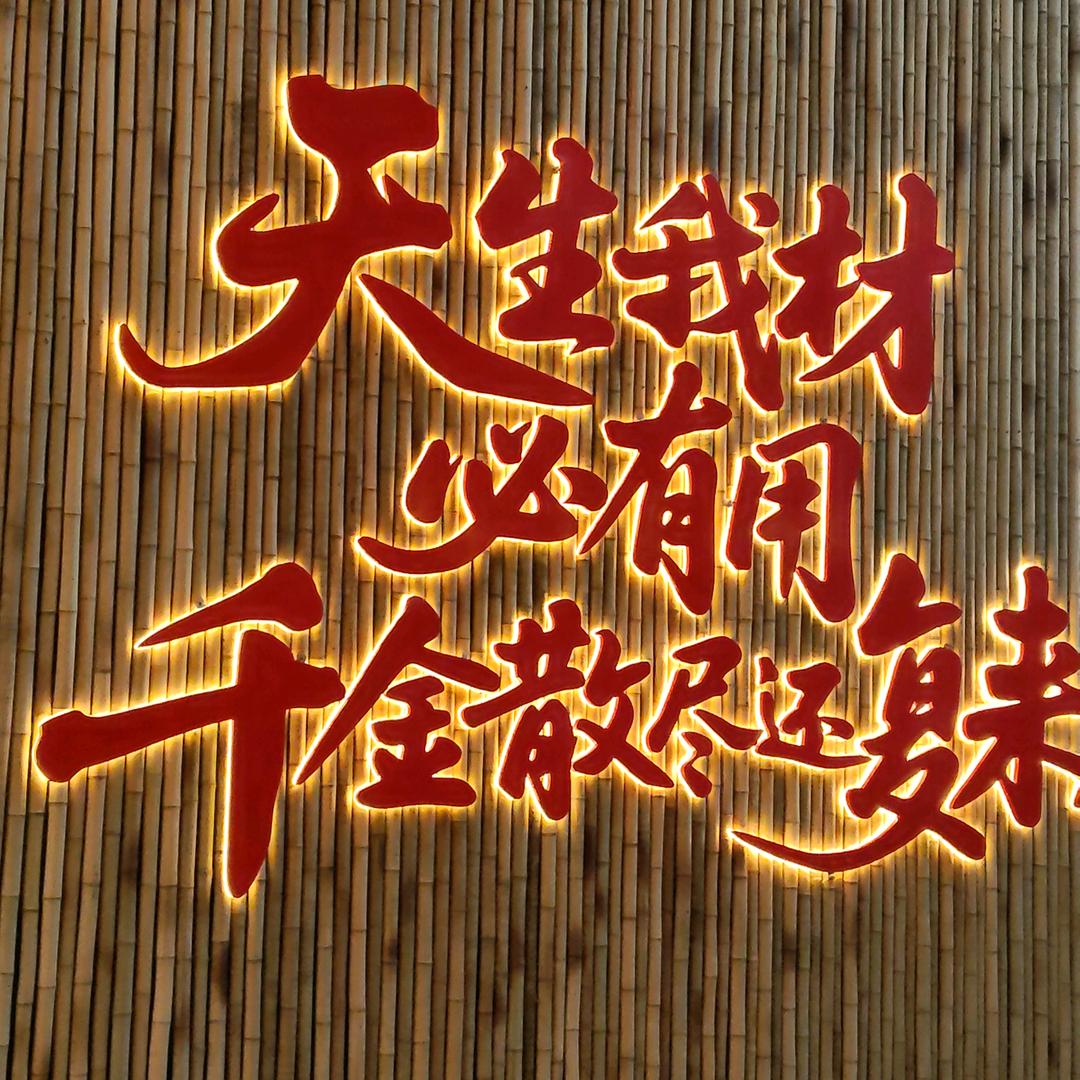 天生我材
必有用
千金散尽还复来